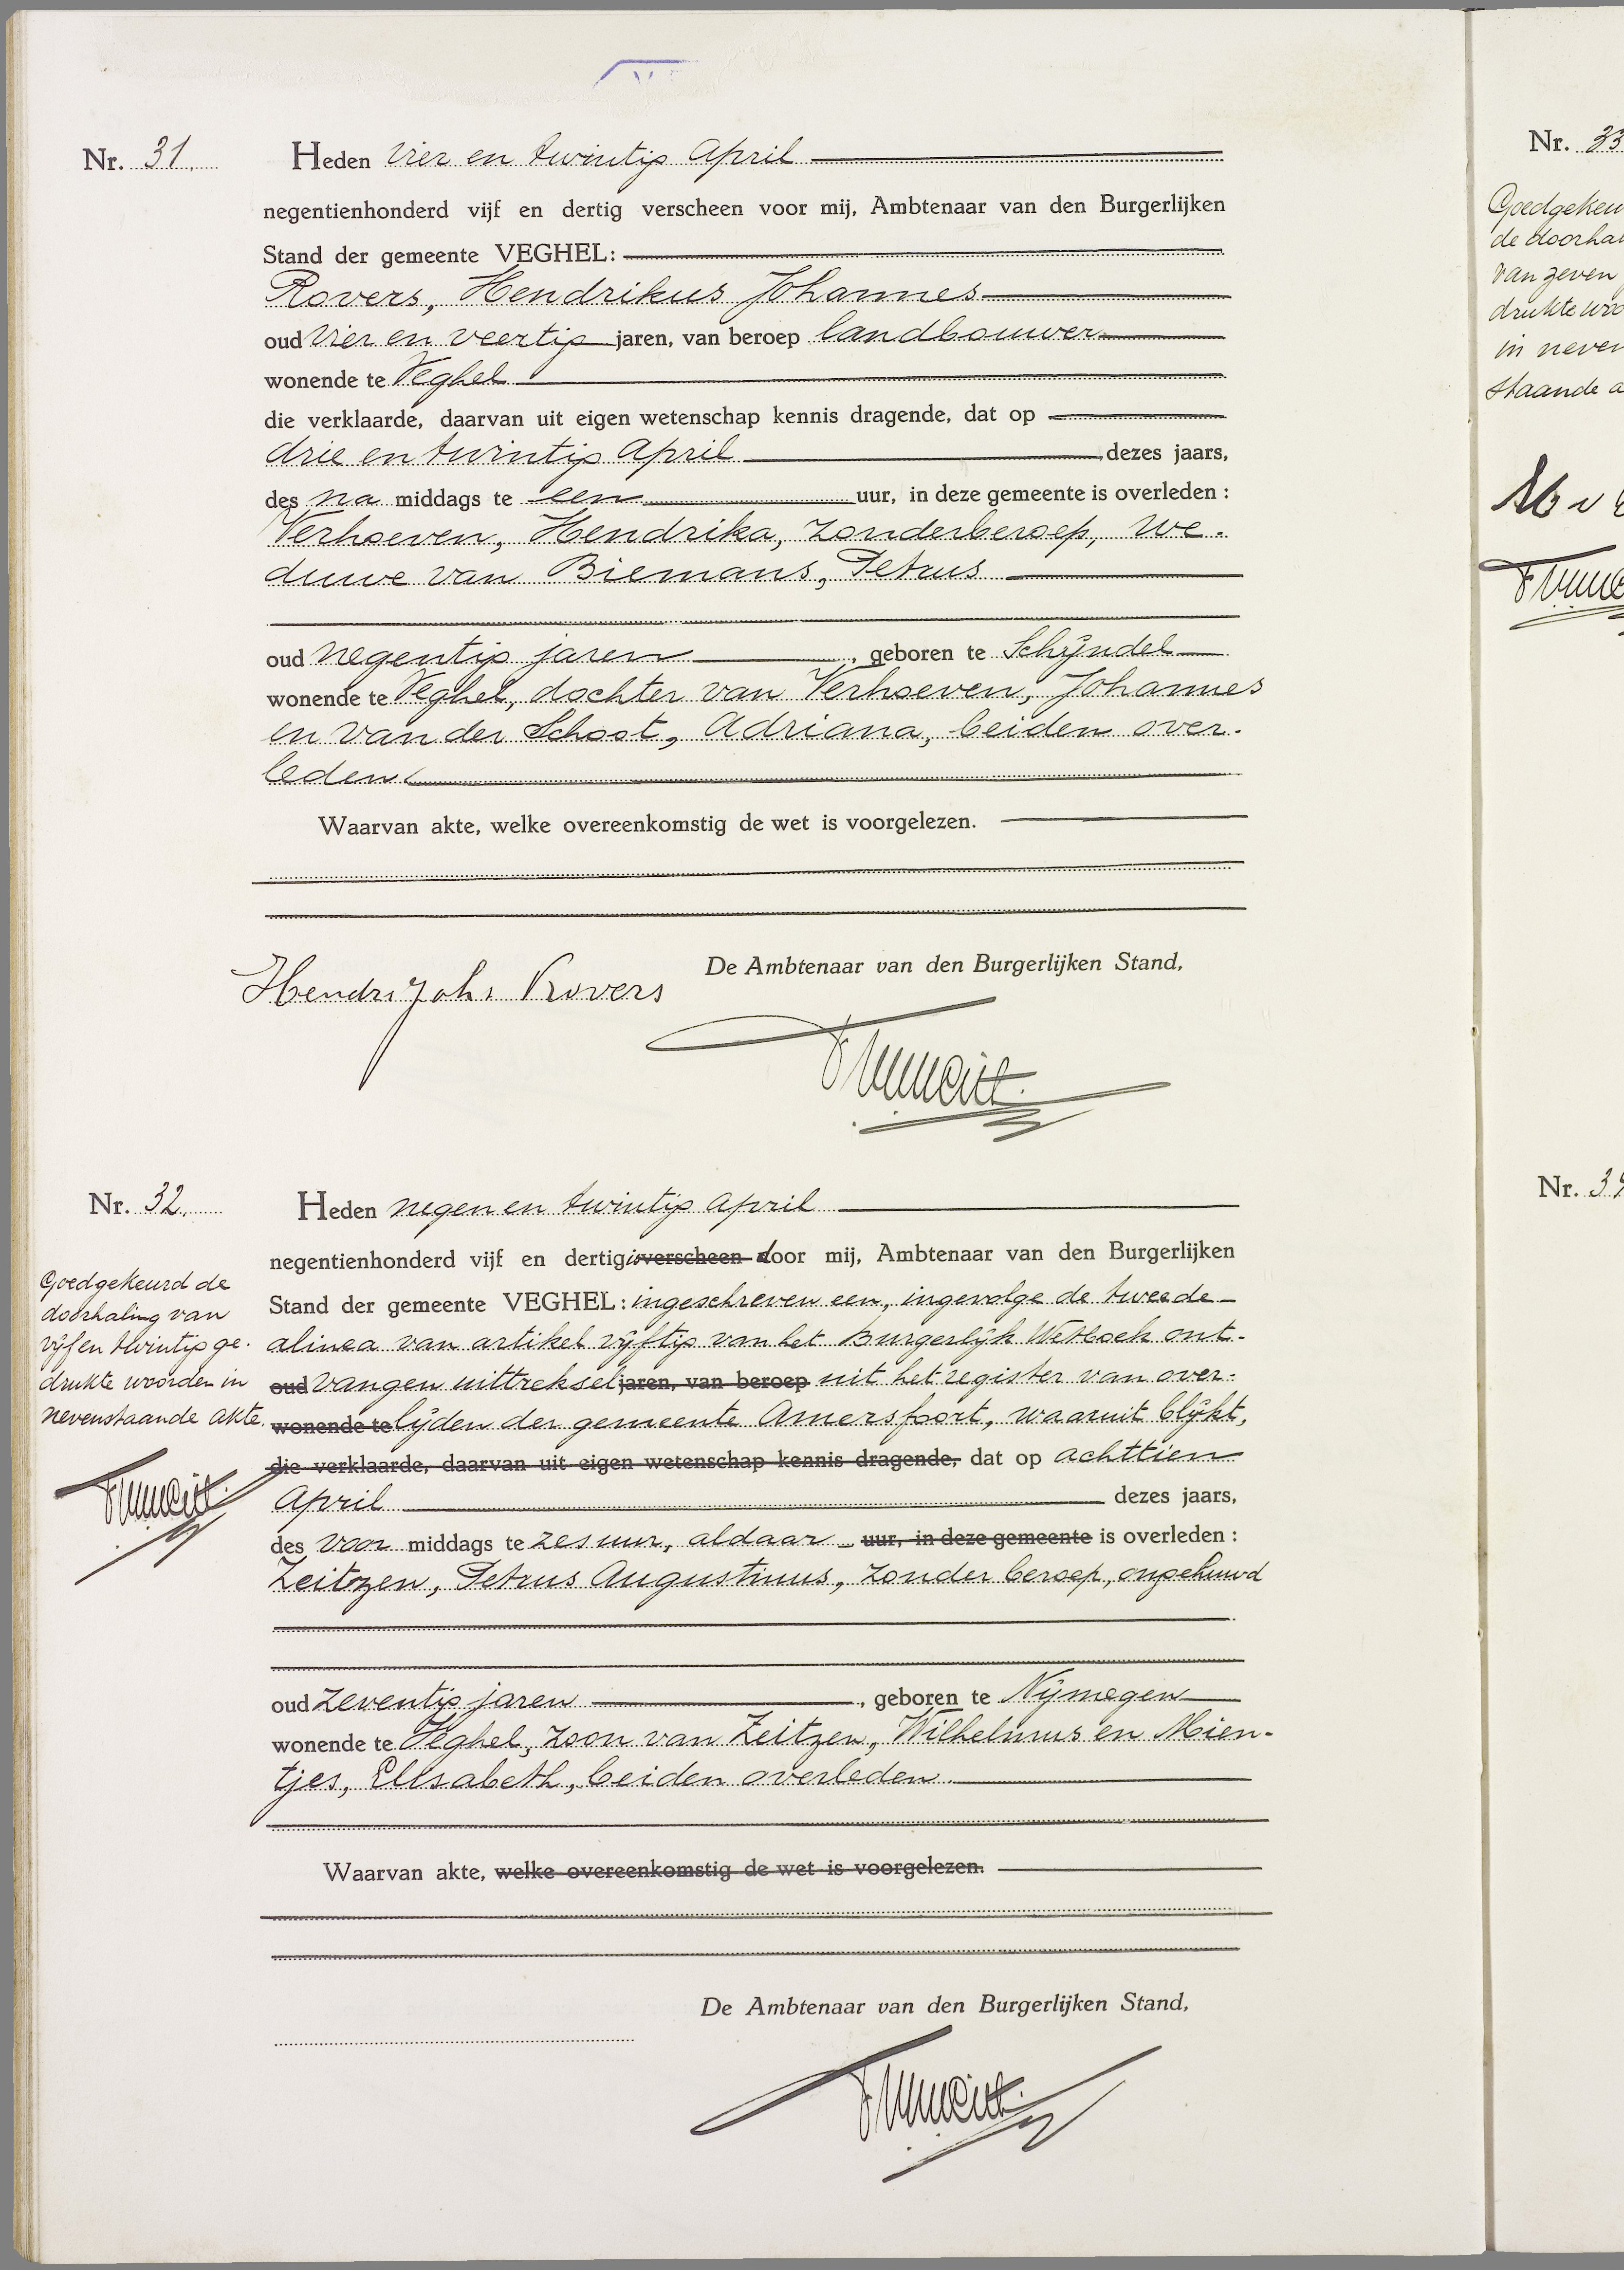 Nr. 31.
Heden vier en twintig April
negentienhonderd vijf en dertig verscheen voor mij, Ambtenaar van den Burgerlijken
Stand der gemeente VEGHEL:
Rovers, Hendrikus Johannes
oud vier en veertig jaren, van beroep landbouwer
wonende te Veghel
die verklaarde, daarvan uit eigen wetenschap kennis dragende, dat op
drie en twintig April dezes jaars,
des na middags te een uur, in deze gemeente is overleden :
Verhoeven, Hendrika, zonder beroep, we-
duwe van Biemans, Petrus
oud negentig jaren, geboren te Schijndel
wonende te Veghel, dochter van Verhoeven, Johannes
en van der Schoot, Adriana, beiden over-
leden.
Waarvan akte, welke overeenkomstig de wet is voorgelezen.
De Ambtenaar van den Burgerlijken Stand,
Hendri Joh. Rovers
Nr. 32.
Heden negen en twintig April
negentienhonderd vijf en dertig is verscheen door mij, Ambtenaar van den Burgerlijken
Stand der gemeente VEGHEL: ingeschreven een, ingevolge de tweede
alinea van artikel vijftig van het Burgerlijk Wetboek ont-
oud vangen uittreksel jaren, van beroep uit het register van over-
wonende te lijden der gemeente Amersfoort, waaruit blijkt,
die verklaarde, daarvan uit eigen wetenschap kennis dragende, dat op achttien
April dezes jaars,
des voor middags te zes uur, aldaar uur, in deze gemeente is overleden :
Zeitzen, Petrus Augustinus, zonder beroep, ongehuwd
oud zeventig jaren, geboren te Nijmegen
wonende te Veghel, zoon van Zeitzen, Wilhelmus en Mien-
tjes, Elisabeth, beiden overleden.
Waarvan akte, welke overeenkomstig de wet is voorgelezen.
De Ambtenaar van den Burgerlijken Stand,
Goedgekeurd de
doorhaling van
vijf en twintig ge-
drukte woorden in
nevenstaande akte.
Nr. 33
de doorha
van zeven
drukte woo
in neven
staande a
Nr. 3